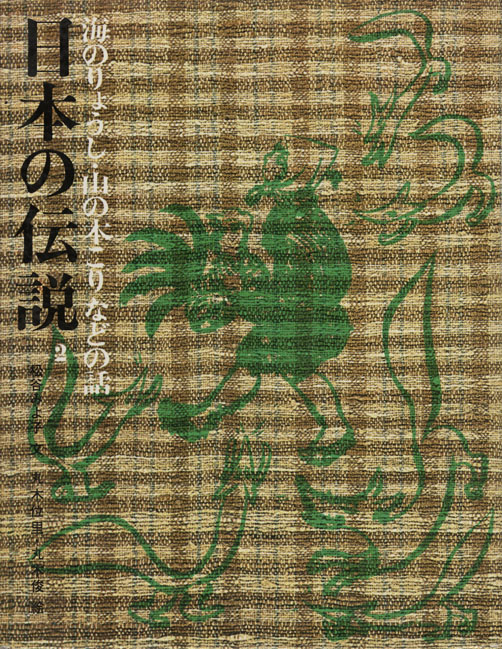 海のりょうし・山の木こりなどの話
日本の伝説
2
松谷みよ子 文 丸木位里・丸木俊 絵